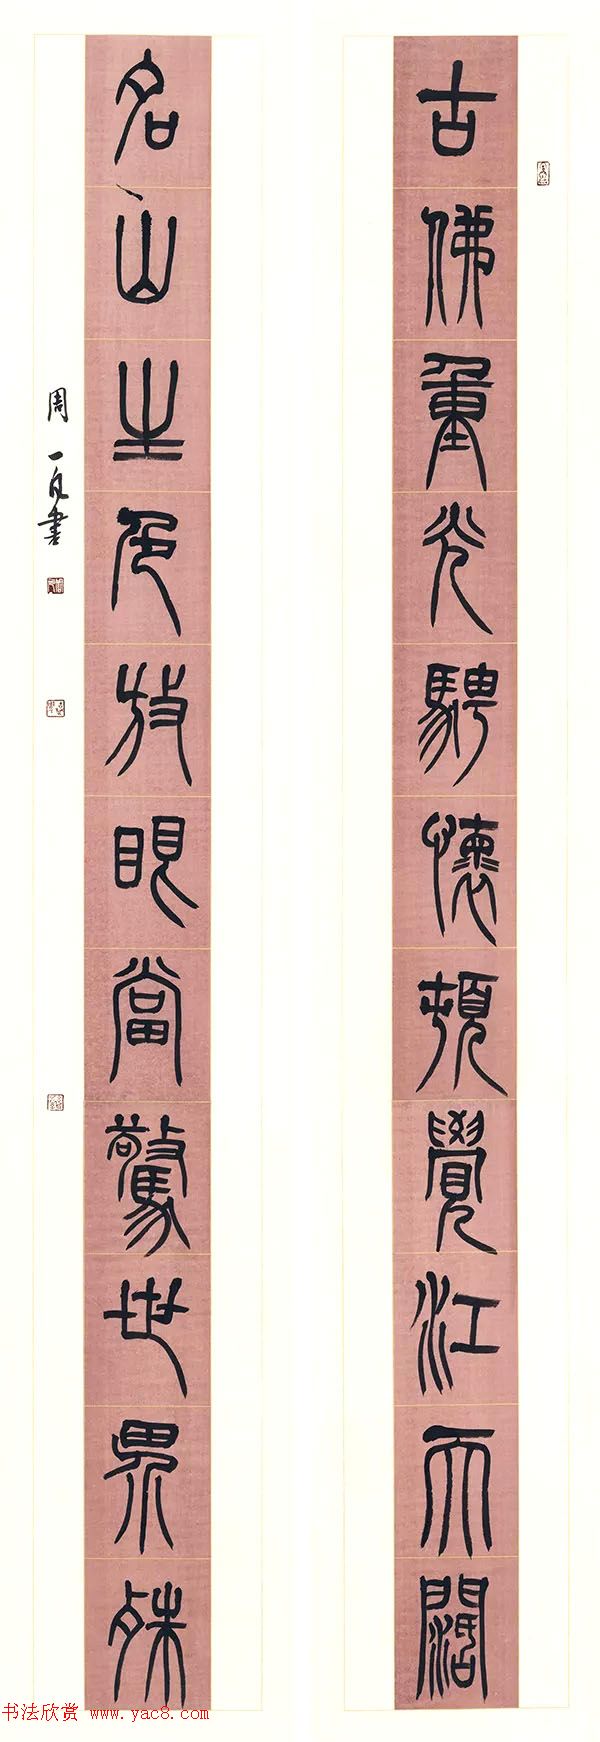 古佛重光騁懷頓覺江天闊
名山生色放眼當驚世界殊
周一書
书法欣赏 www.yac8.com